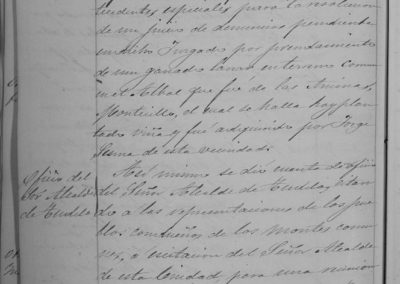 cedentes especiales para la resolucion
de un juicio de denuncia pendiente
en dicho Juzgado por prendamiento
de un ganado lanar en terreno comun
en el Abal que fue de las Animas,
Montecillo, el cual se halla hoy plan-
tado viña y fué adquirido por Jorge
de esta vecindad.
Oficio del
Sor Alcalde
de Tudela
Asi mismo se dió cuenta de oficio
del Señor Alcalde de Tudela, citan-
do a las representaciones de los pue-
blos congozantes de los Montes comu-
nes, a invitacion del Señor Alcalde
de esta Ciudad, para una reunion